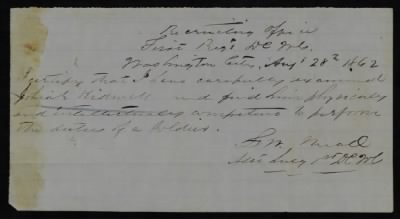 Recruiting Office
First Reg't DC Vols.
Washington City, Aug't 28th 1862
I certify that I have carefully examined
Ridwell and find him physically
and intellectually competent to perform
the duties of a Soldier.
Ass't Surg 1st DC Vol